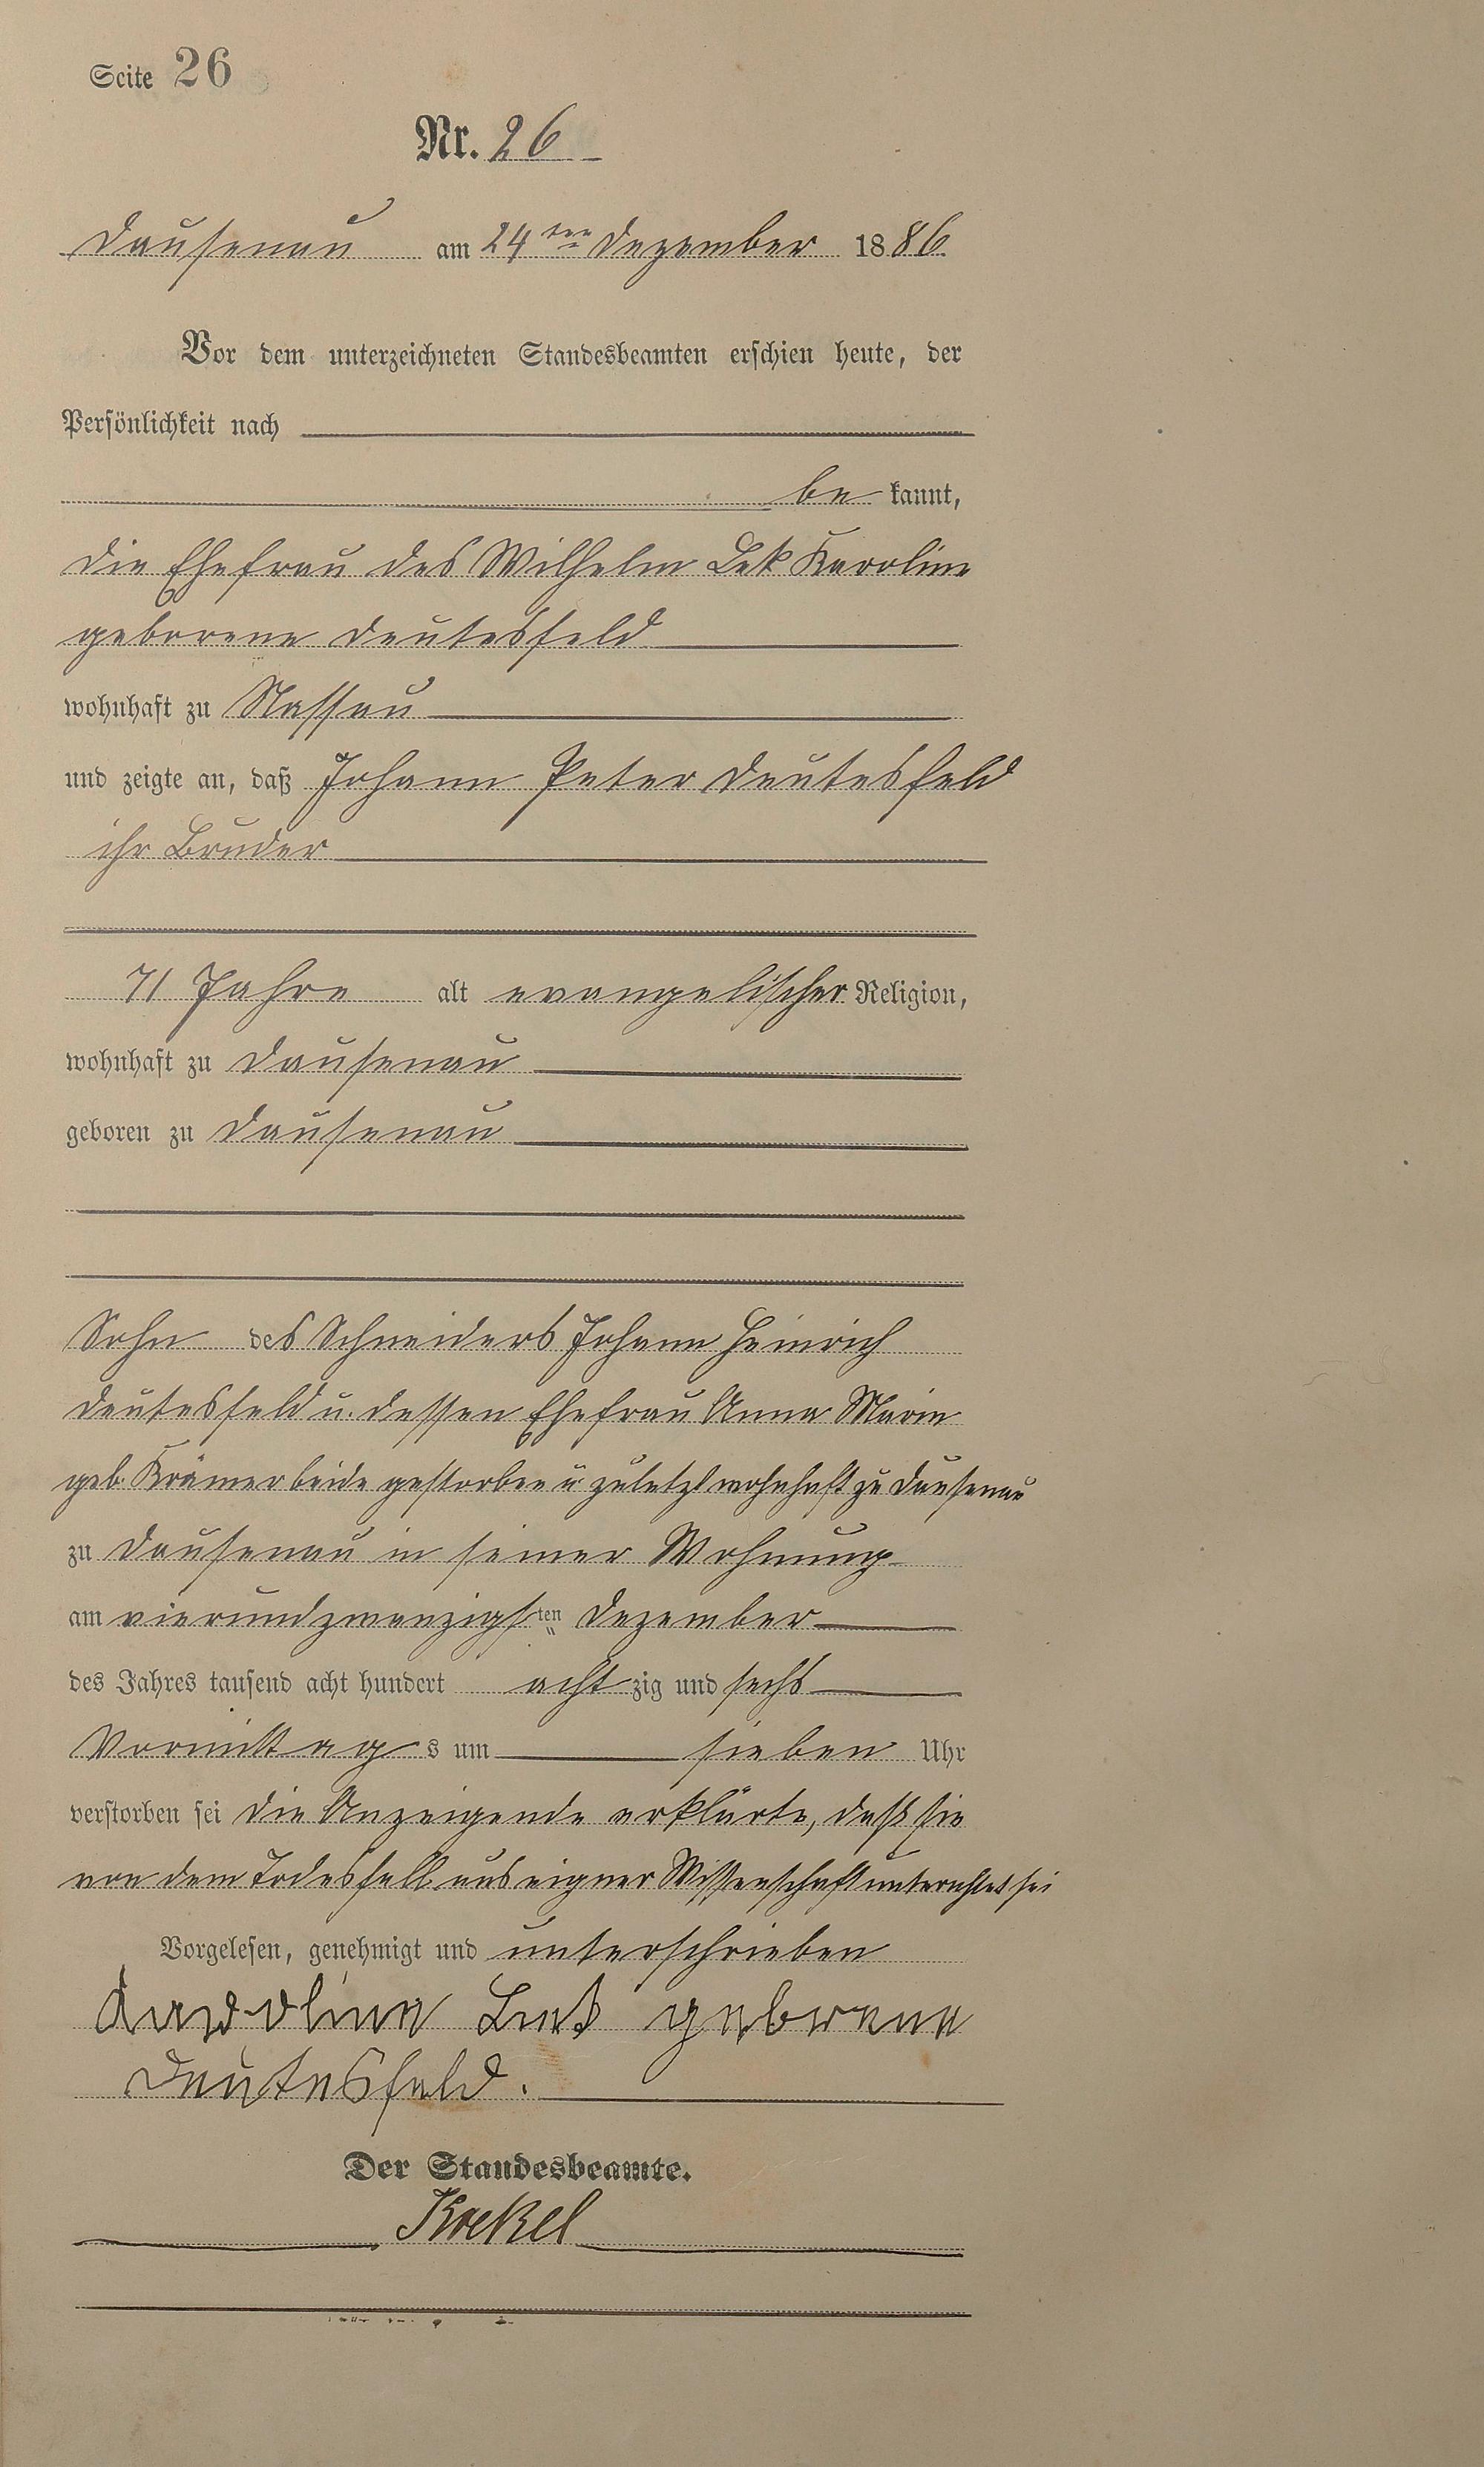 Seite 26
Nr. 26
Dausenau am 24ten Dezember 1886
Vor dem unterzeichneten Standesbeamten erschien heute, der
Persönlichkeit nach
be kannt,
die Ehefrau des Wilhelm Karoline
geborene Deutesfeld
wohnhaft zu Nassau
und zeigte an, daß Johann Peter Deutesfeld
ihr Bruder
71 Jahre alt evangelischer Religion,
wohnhaft zu Dausenau
geboren zu Dausenau
Sohn des Schneiders Johann Heinrich
Deutesfeld u. dessen Ehefrau Anna Marie
geb. Krämer beide gestorben u. zuletzt wohnhaft zu Dausenau
zu Dausenau in seiner Wohnung
am vierundzwanzigsten Dezember
des Jahres tausend acht hundert achtzig und sechs
Vormittags um sieben Uhr
verstorben sei die Anzeigende erklärte, daß sie
von dem Todesfall aus eigner Wissenschaft unterrichtet sei
Vorgelesen, genehmigt und unterschrieben
geborene
Deutesfeld.
Der Standesbeamte.